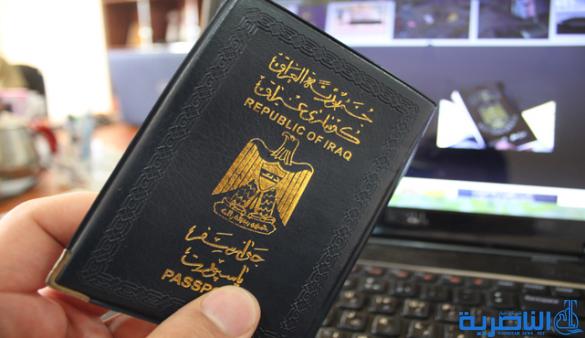 جمهورية العراق
كوماری عێراق
REPUBLIC OF IRAQ
جواز سفر
پاسپورت
PASSP
الناصرية